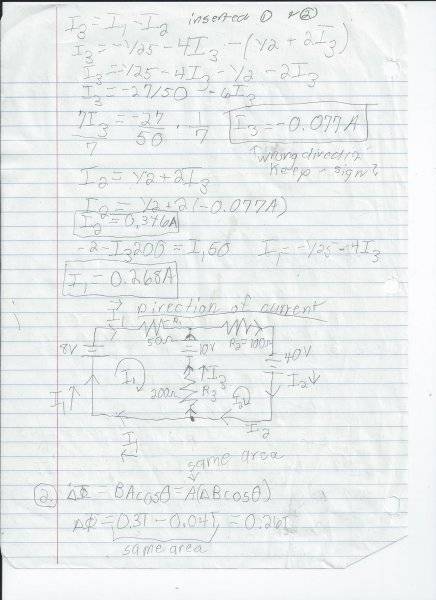 I₃ = I₁ - I₂ inserted ① + ②
I₃ = -1/25 - 4I₃ - (1/2 + 2I₃)
I₃ = -1/25 - 4I₃ - 1/2 - 2I₃
I₃ = -27/50 - 6I₃
7I₃/7 = -27/50 · 1/7 I₃ = -0.077A
↑wrong direction
Keep - sign?
I₂ = 1/2 + 2I₃
I₂ = 1/2 + 2(-0.077A)
I₂ = 0.346A
-2 - I₃200 = I₁50 I₁ = -1/25 - 4I₃
I₁ = 0.268A
→ Direction of current
I₁ R₁
50Ω 10V R₂=100Ω
8V 40V
I₁ ↑I₃ I₂↓
I₁↑ 200Ω R₃ I₂
I₁ I₂
←
same area
②. ΔΦ = BAcosθ = A(ΔBcosθ)
ΔΦ = 0.31 - 0.04T = 0.26T
same area